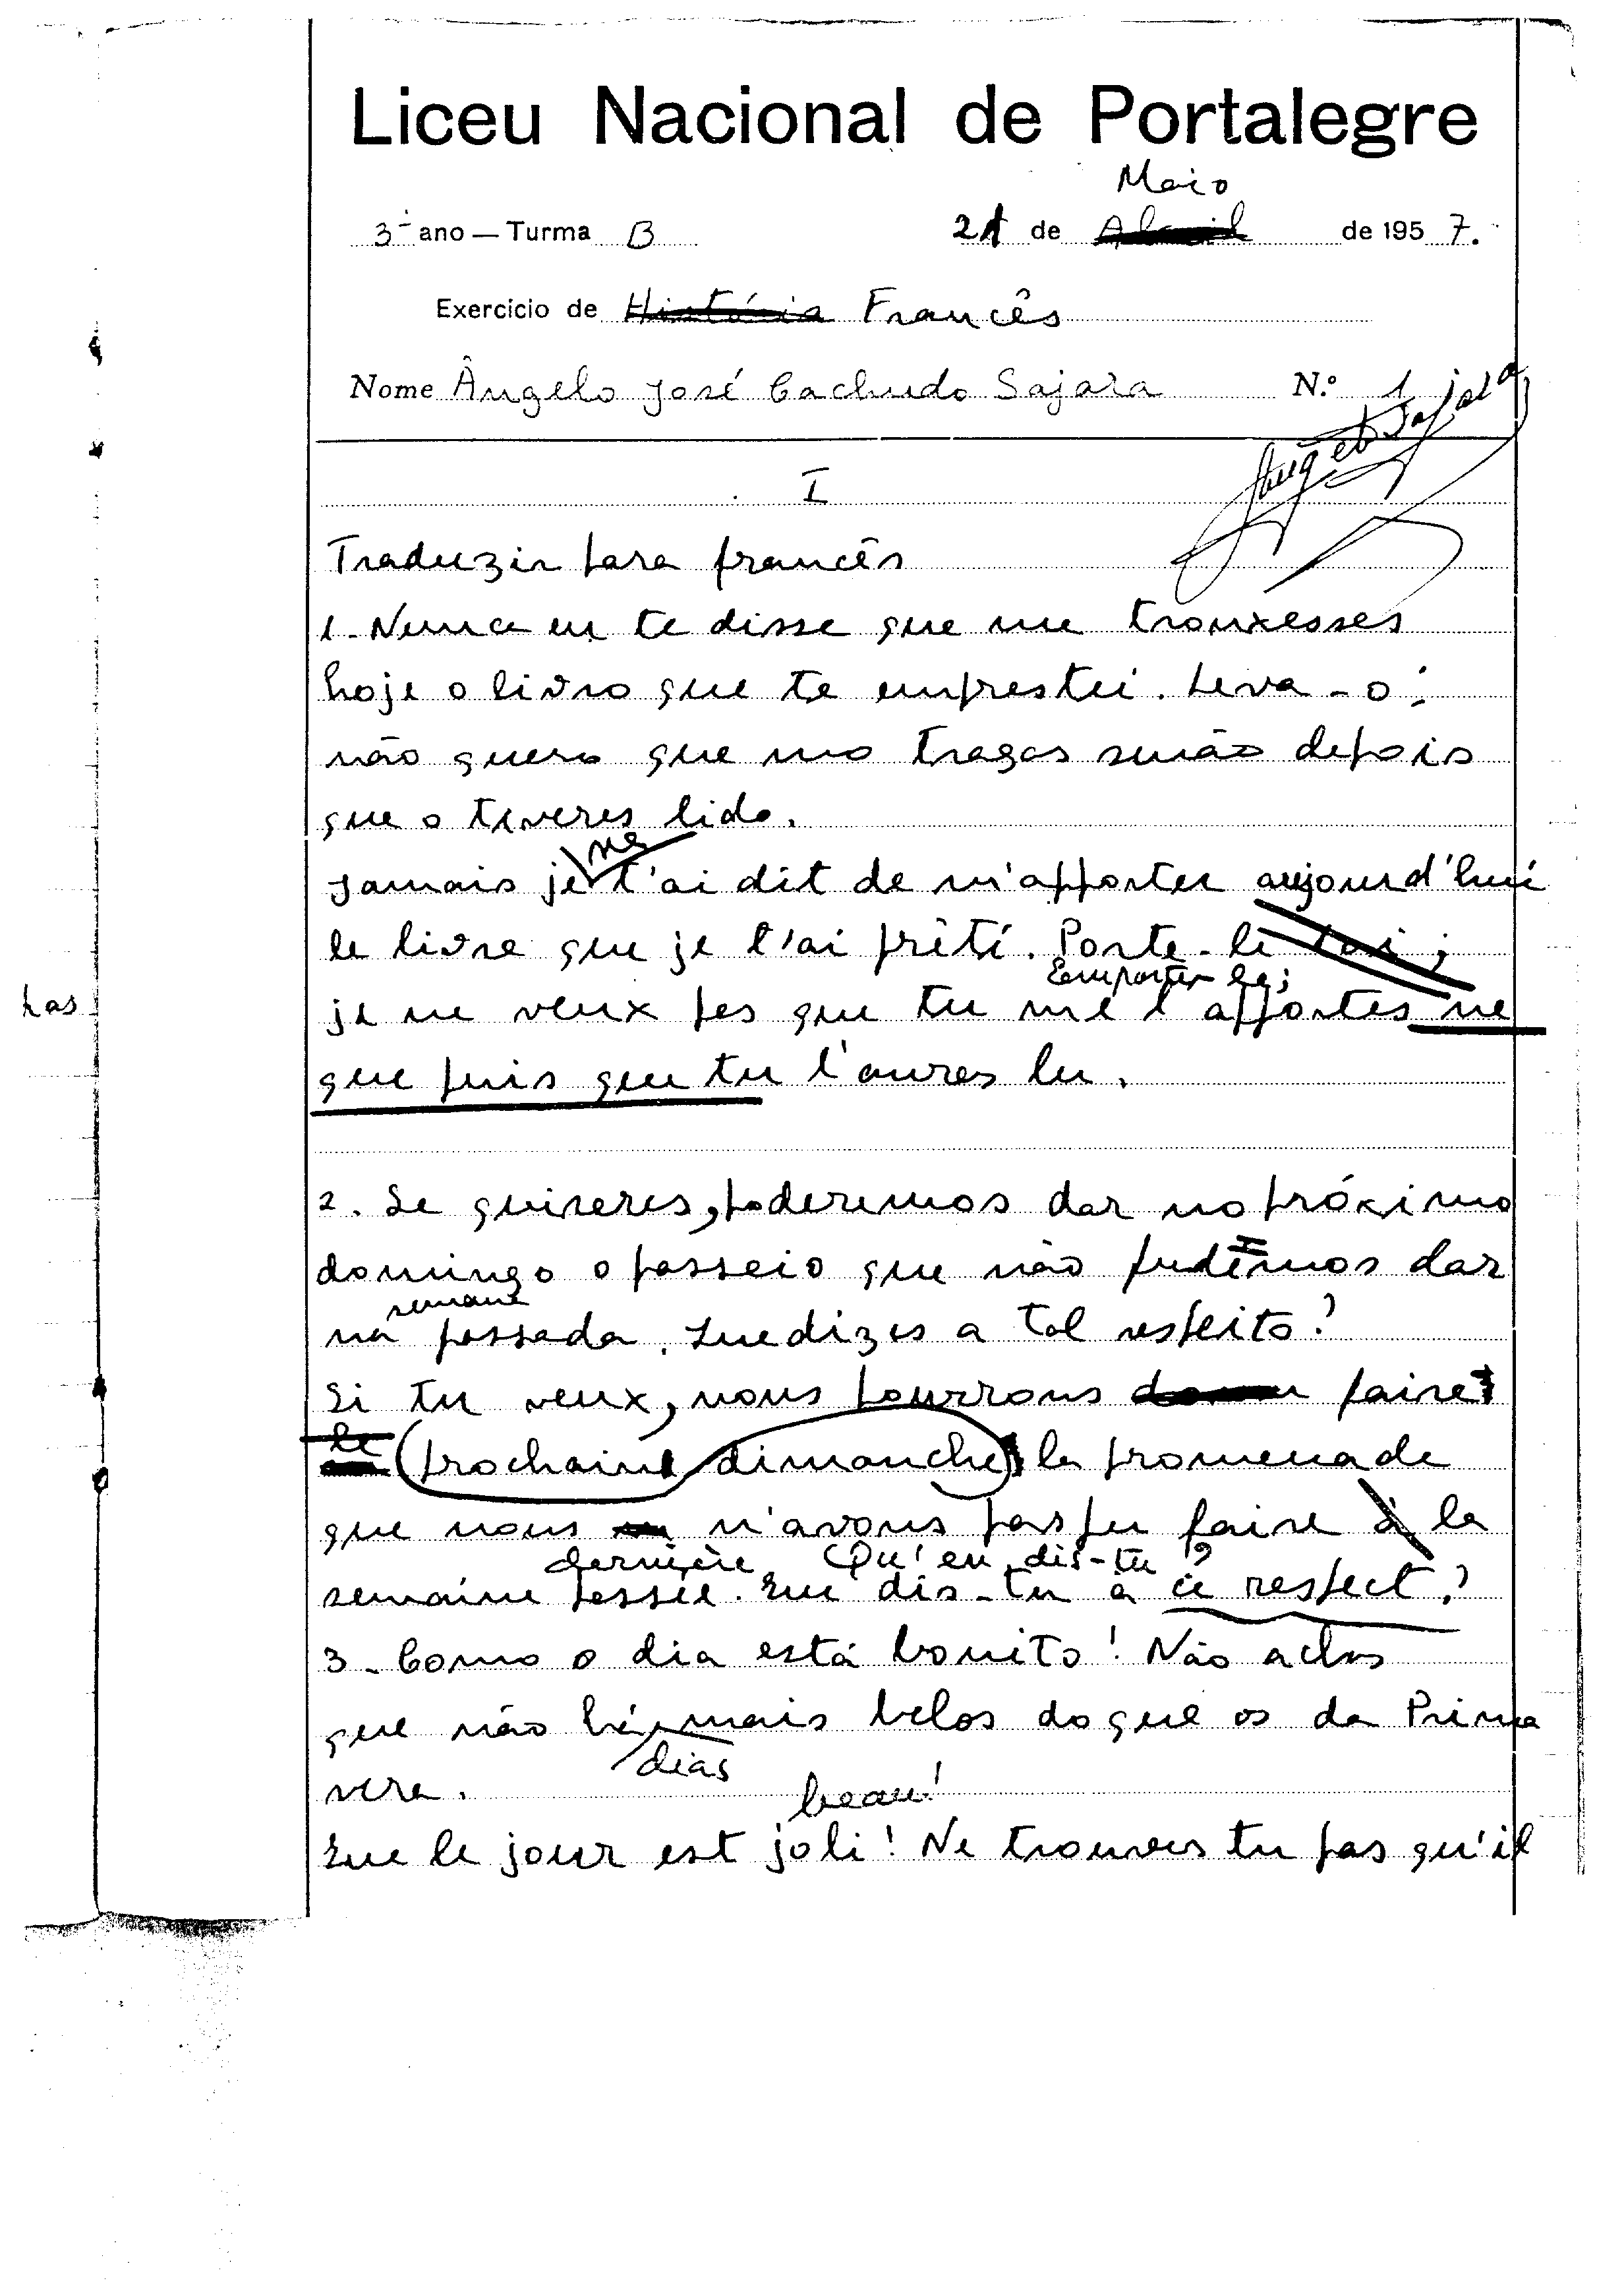 Liceu Nacional de Portalegre
Maio
3º ano — Turma B 21 de Abril de 1957.
Exercício de História Francês
Nome Ângelo José Cachudo Sajara N.º 1
Angelo Sajara
I
Traduzir para francês
1. Nunca eu te disse que me trouxesses
hoje o livro que te emprestei. Leva-o;
não quero que mo tragas senão depois
que o tiveres lido.
ne
Jamais je t'ai dit de m'apporter aujourd'hui
le livre que je t'ai prêté. Porte-le toi;
Emporter le;
je ne veux pas que tu me l'apportes ne
que puis que tu l'aures lu.
2. Se quiseres, poderemos dar no próximo
domingo o passeio que não pudemos dar
semana
na passada. Que dizes a tal respeito?
Si tu veux, nous pourrons faire
le prochaine dimanche la promenade
que nous n'avons pas pu faire à la
dernière Qu'en dis-tu?
semaine passée. Que dis-tu à ce respect?
3. Como o dia está bonito! Não achas
que não há mais belos do que os da Prima
dias
vera.
beau!
Que le jour est joli! Ne trouves tu pas qu'il
has